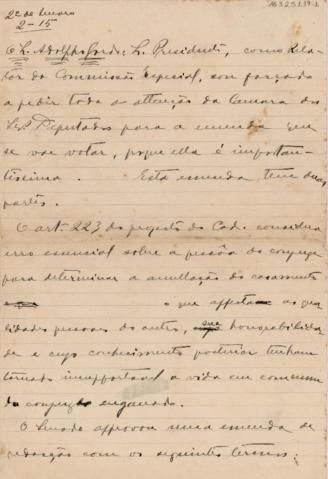 2ª do Senado
2-15
O Sr. Adolpho Gordo: Sr. Presidente, como Rela-
tor da Commissão Especial, sou forçado
a pedir toda a attenção da Camara dos
Srs. Deputados para a emenda que
se vae votar, porque ella é importan-
tissima. Esta emenda tem duas
partes.
O art. 223 do projecto do Cod. considera
erro essencial sobre a pessôa do conjuge
para determinar a annullação do casamento
o que affecta as qua-
lidades pessoaes do outro, honorabilida-
de e cujo conhecimento posterior tenham
tornado insupportavel a vida em commum
do conjuge enganado.
O Senado approvou uma emenda de
redacção com os seguintes termos: